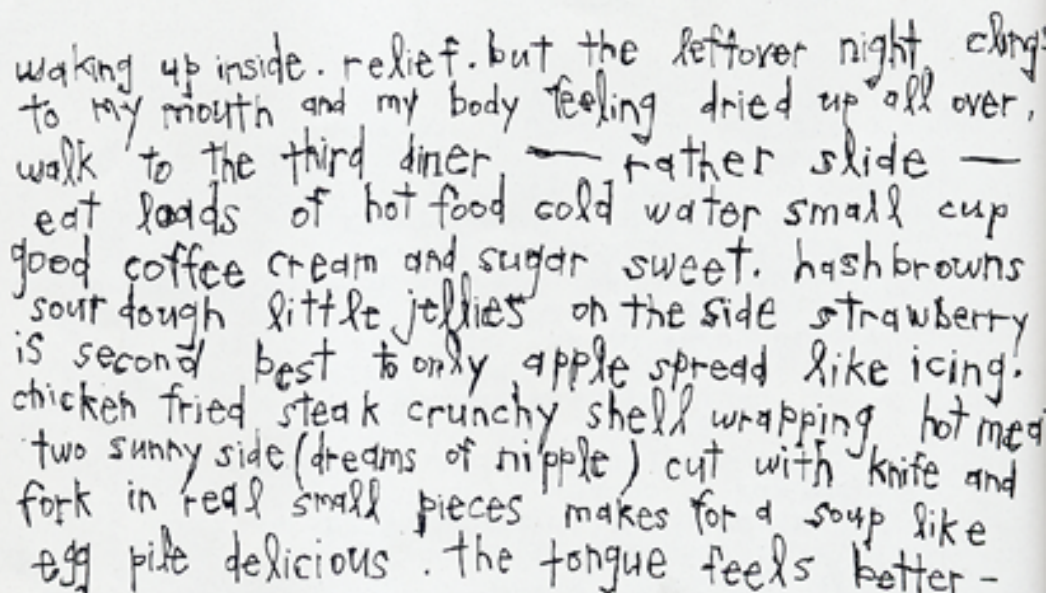 waking up inside. relief. but the leftover night clings
to my mouth and my body feeling dried up all over.
walk to the third diner — rather slide —
eat loads of hot food cold water small cup
good coffee cream and sugar sweet. hashbrowns
sour dough little jellies on the side strawberry
is second best to only apple spread like icing.
chicken fried steak crunchy shell wrapping hot mea
two sunny side (dreams of nipple) cut with knife and
fork in real small pieces makes for a soup like
egg pile delicious. the tongue feels better-